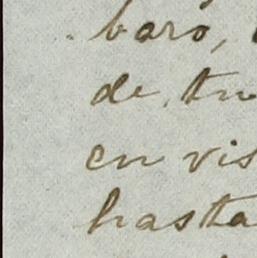 baro,
de tu
en vis
hasta